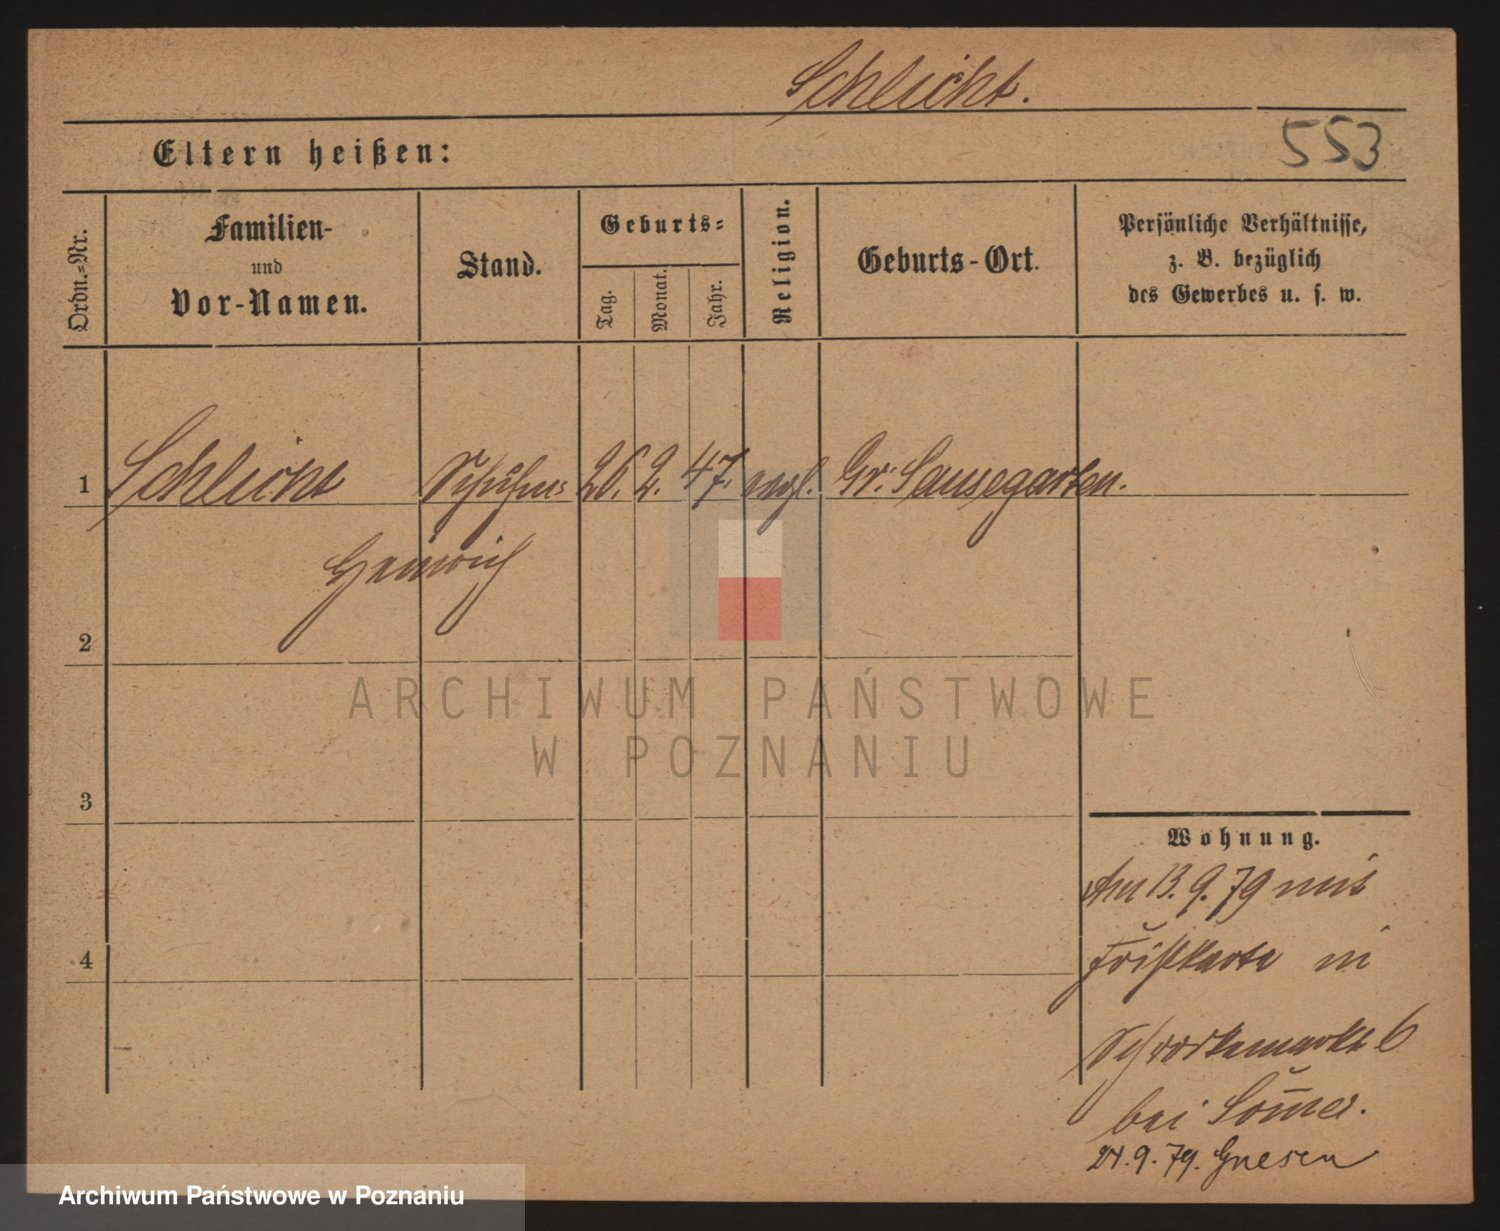 Schlicht.
553
Eltern heißen:
Ordn.=Nr.
Familien- und Vor-Namen.
Stand.
Geburts=
Tag.
Monat.
Jahr.
Religion.
Geburts-Ort.
Persönliche Verhältnisse,
z. B. bezüglich
des Gewerbes u. s. w.
1 Schlicht 26. 2. 47. evgl. Gr. Sausegarten.
Heinrich
2
3
4
ARCHIWUM PAŃSTWOWE
W POZNANIU
Wohnung.
Am 13. 9. 79 mit
Fristkarte in
6
bei
24. 9. 79. Gnesen
Archiwum Państwowe w Poznaniu